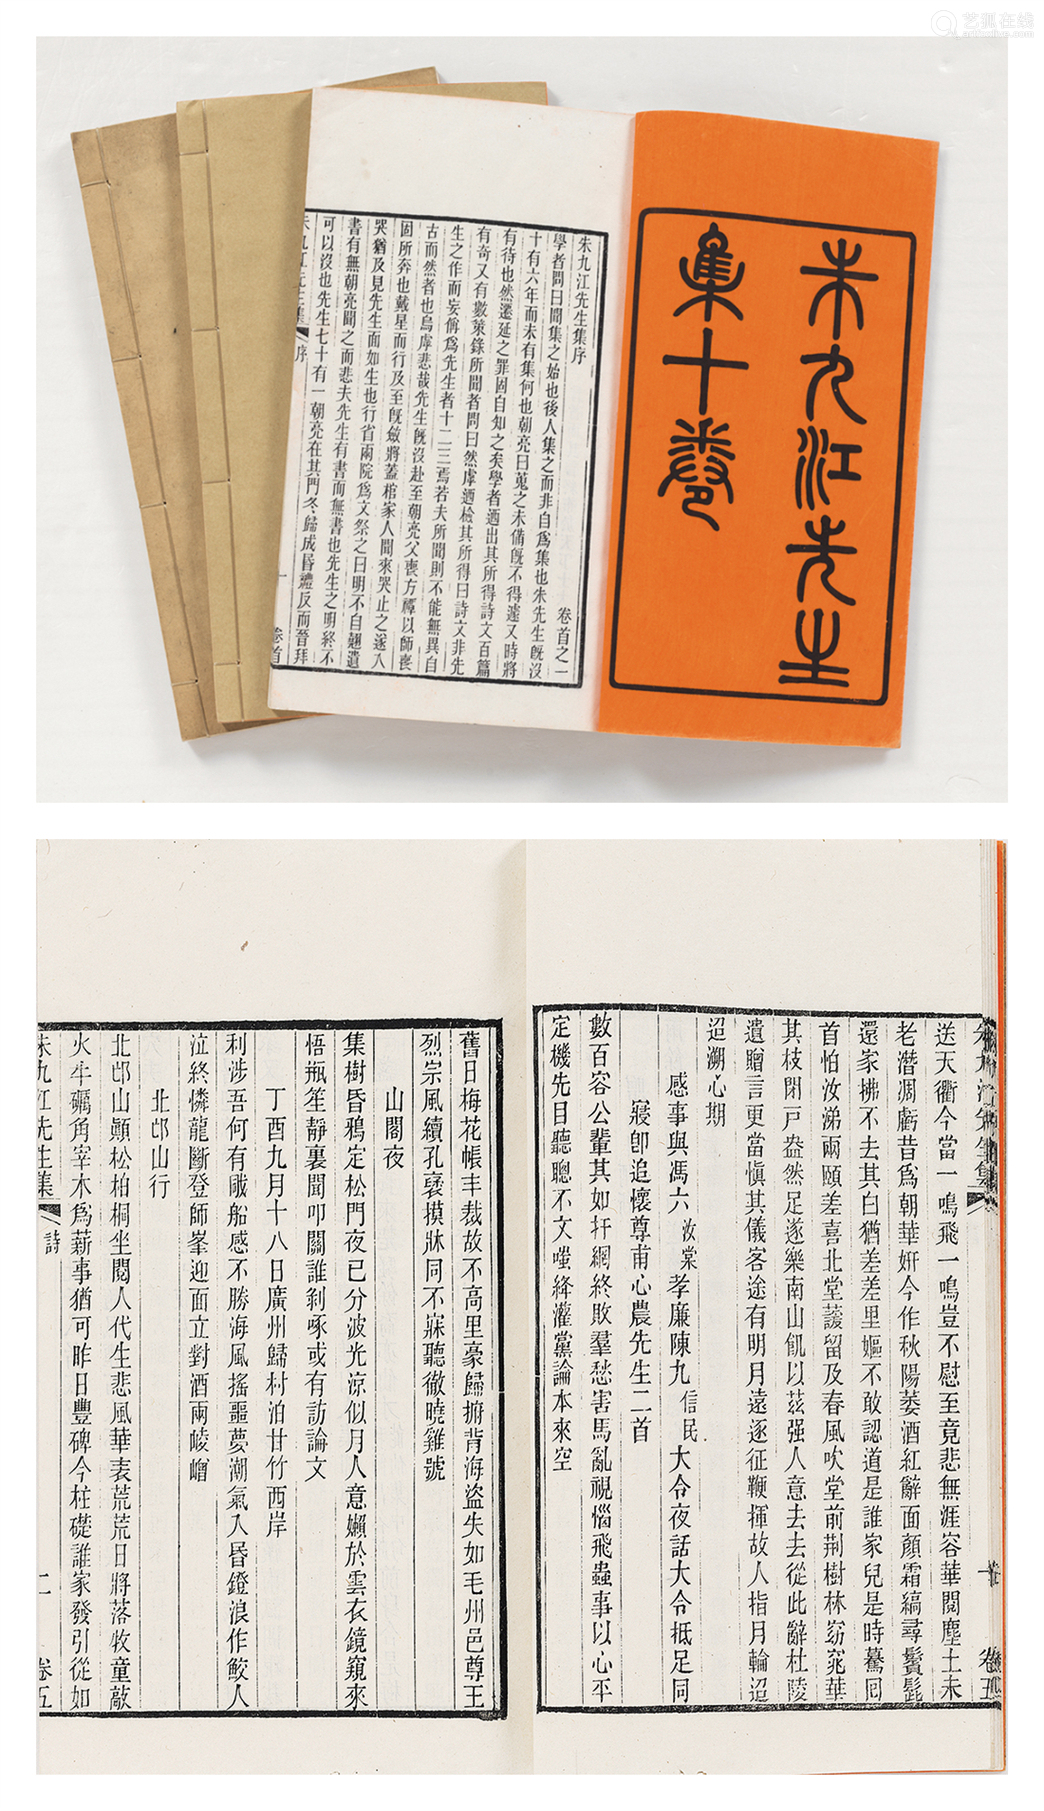 艺狐在线
朱九江先生
集十卷
朱九江先生集序 卷首之一
學者問曰聞集之始也後人集之而非自爲集也朱先生旣沒
十有六年而未有集何也朝亮曰蒐之未備旣不得遽又時將
有待也然遷延之罪固自知之矣學者迺出其所得詩文百篇
有奇又有數策錄所聞者問曰然虖迺檢其所得曰詩文非先
生之作而妄儕爲先生者十二三焉若夫所聞則不能無異自
古而然者也烏虖悲哉先生旣沒赴至朝亮父喪方禫以師喪
固所奔也戴星而行及至旣斂將蓋棺家人聞來哭止之遂入
哭猶及見先生面如生也行省兩院爲文祭之曰明不自翹遺
書有無朝亮聞之而悲夫先生有書而無書也先生之明終不
可以沒也先生七十有一朝亮在其門冬歸成昏禮反而晉拜
朱九江先生集 序 一 卷首
送天衢今當一鳴飛一鳴豈不慰至竟悲無涯容華閱塵土未
老潛凋虧昔爲朝華姸今作秋陽萎酒紅辭面顏霜縞尋鬢髭
還家拂不去其白猶差差里嫗不敢認道是誰家兒是時驀回
首怕汝涕兩頤差喜北堂護留及春風吹堂前荆樹林窈窕華
其枝閉戸盎然足遂樂南山飢以茲强人意去去從此辭杜陵
遺贈言更當愼其儀客途有明月遠逐征鞭揮故人指月輪迢
迢溯心期
感事與馮六汝棠孝廉陳九信民大令夜話大令抵足同
寢卽追懷尊甫心農先生二首
數百容公輩其如扞網終敗羣愁害馬亂視惱飛蟲事以心平
定機先目聽聰不文嗤絳灌黨論本來空
舊日梅花帳丰裁故不高里豪歸掮背海盜失如毛州邑尊王
烈宗風續孔褒摸牀同不寐聽徹曉雞號
山閣夜
集樹昏鴉定松門夜已分波光涼似月人意嬾於雲衣鏡窺來
悟瓶笙靜裏聞叩關誰剝啄或有訪論文
丁酉九月十八日廣州歸村泊甘竹西岸
利涉吾何有颿船感不勝海風搖噩夢潮氣入昏鐙浪作鮫人
泣終憐龍斷登師峯迎面立對酒兩崚嶒
北邙山行
北邙山顚松柏桐坐閱人代生悲風華表荒荒日將落牧童敲
火牛礪角宰木爲薪事猶可昨日豐碑今柱礎誰家發引從如
朱九江先生集 詩 二 卷五